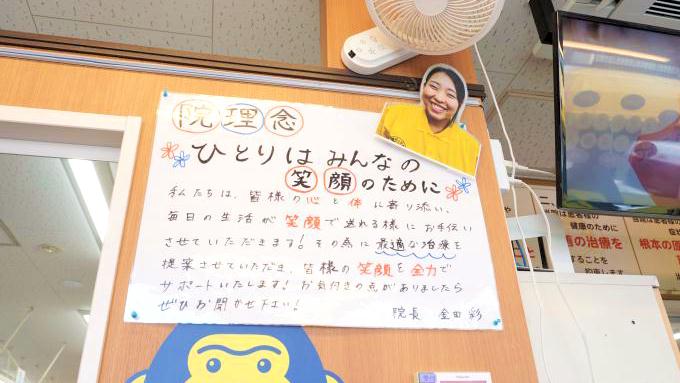 院理念
ひとりはみんなの
笑顔のために
私たちは、皆様の心と体に寄り添い、
毎日の生活が笑顔で送れる様にお手伝い
させていただきます！その為に最適な治療を
提案させていただき、皆様の笑顔を全力で
サポートいたします！お気付きの点がありましたら
ぜひお聞かせ下さい！
院長 金田 彩
健康のために
の治療を
することを
約束します
根本の原